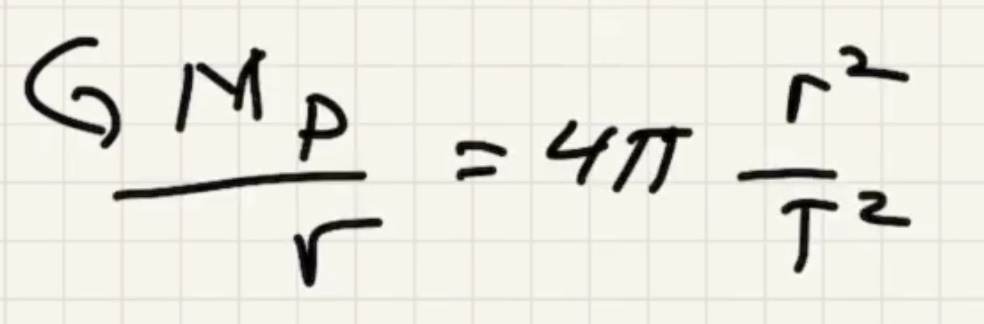 G M_p / r = 4π r² / T²